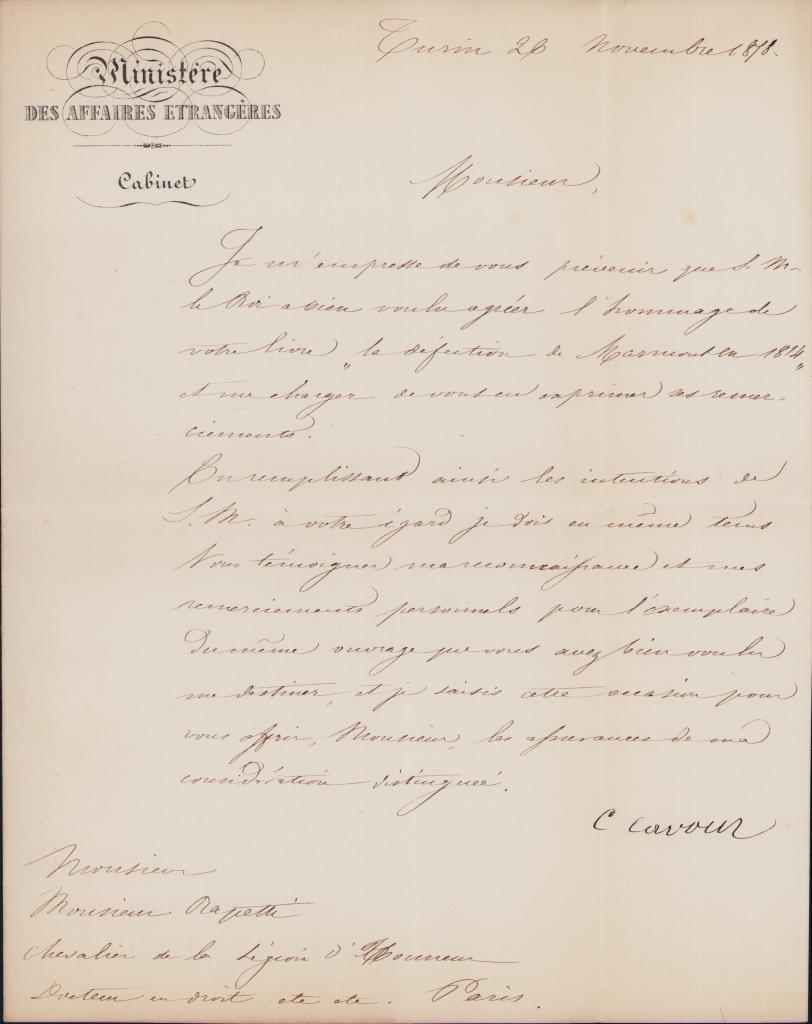 Turin 26 Novembre 1858.
Ministère
DES AFFAIRES ETRANGÈRES
Cabinet
Monsieur,
Je m'empresse de vous prévenir que S. M.
le Roi a bien voulu agréer l'hommage de
votre livre „ la défection de Marmont en 1814 „
et me charger de vous en exprimer ses remer-
ciements.
En remplissant ainsi les intentions de
S. M. à votre égard je dois en même tems
Vous témoigner ma reconnaissance et mes
remerciements personnels pour l'exemplaire
du même ouvrage que vous avez bien voulu
me destiner, et je saisis cette occasion pour
vous offrir, Monsieur, les assurances de ma
considération distinguée.
C Cavour
Monsieur
Monsieur Rapetti
Chevalier de la Légion d'Honneur
Docteur en droit etc etc. Paris.